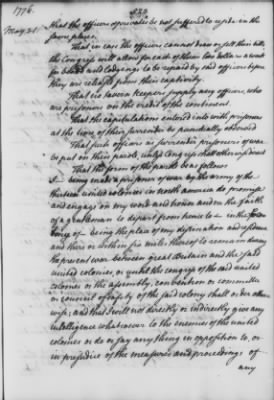 1776.
233
May 21
that the officers & privates be not suffered to reside in the
same place.
That in case the officers cannot draw or sell their bills,
the Congress will allow for each of them two dollars a week
for board and lodgings to be repaid by said officers before
they are released from their captivity.
That no tavern keepers supply any officers, who
are prisoners on the credit of the continent.
That the capitulations entered into with prisoners
at the time of their surrender be punctually observed
That such officers as surrender prisoners of war
be put on their parole, unless Congress shall otherwise direct
That the form of the parole be as follows
I being made a prisoner of war by the army of the
thirteen united colonies in north America do promise
and engage on my word and honor and on the faith
of a gentleman to depart from hence to in the
being the place of my destination and residence
and there or within six miles thereof to remain during
the present war between great Britain and the said
united colonies, or until the congress of the said united
colonies or the assembly, convention or committee
or council of safety of the said colony shall order other
wise; and that I will not directly or indirectly give any
intelligence whatsoever to the enemies of the united
colonies or do or say any thing in opposition to, or
in prejudice of the measures and proceedings of
any